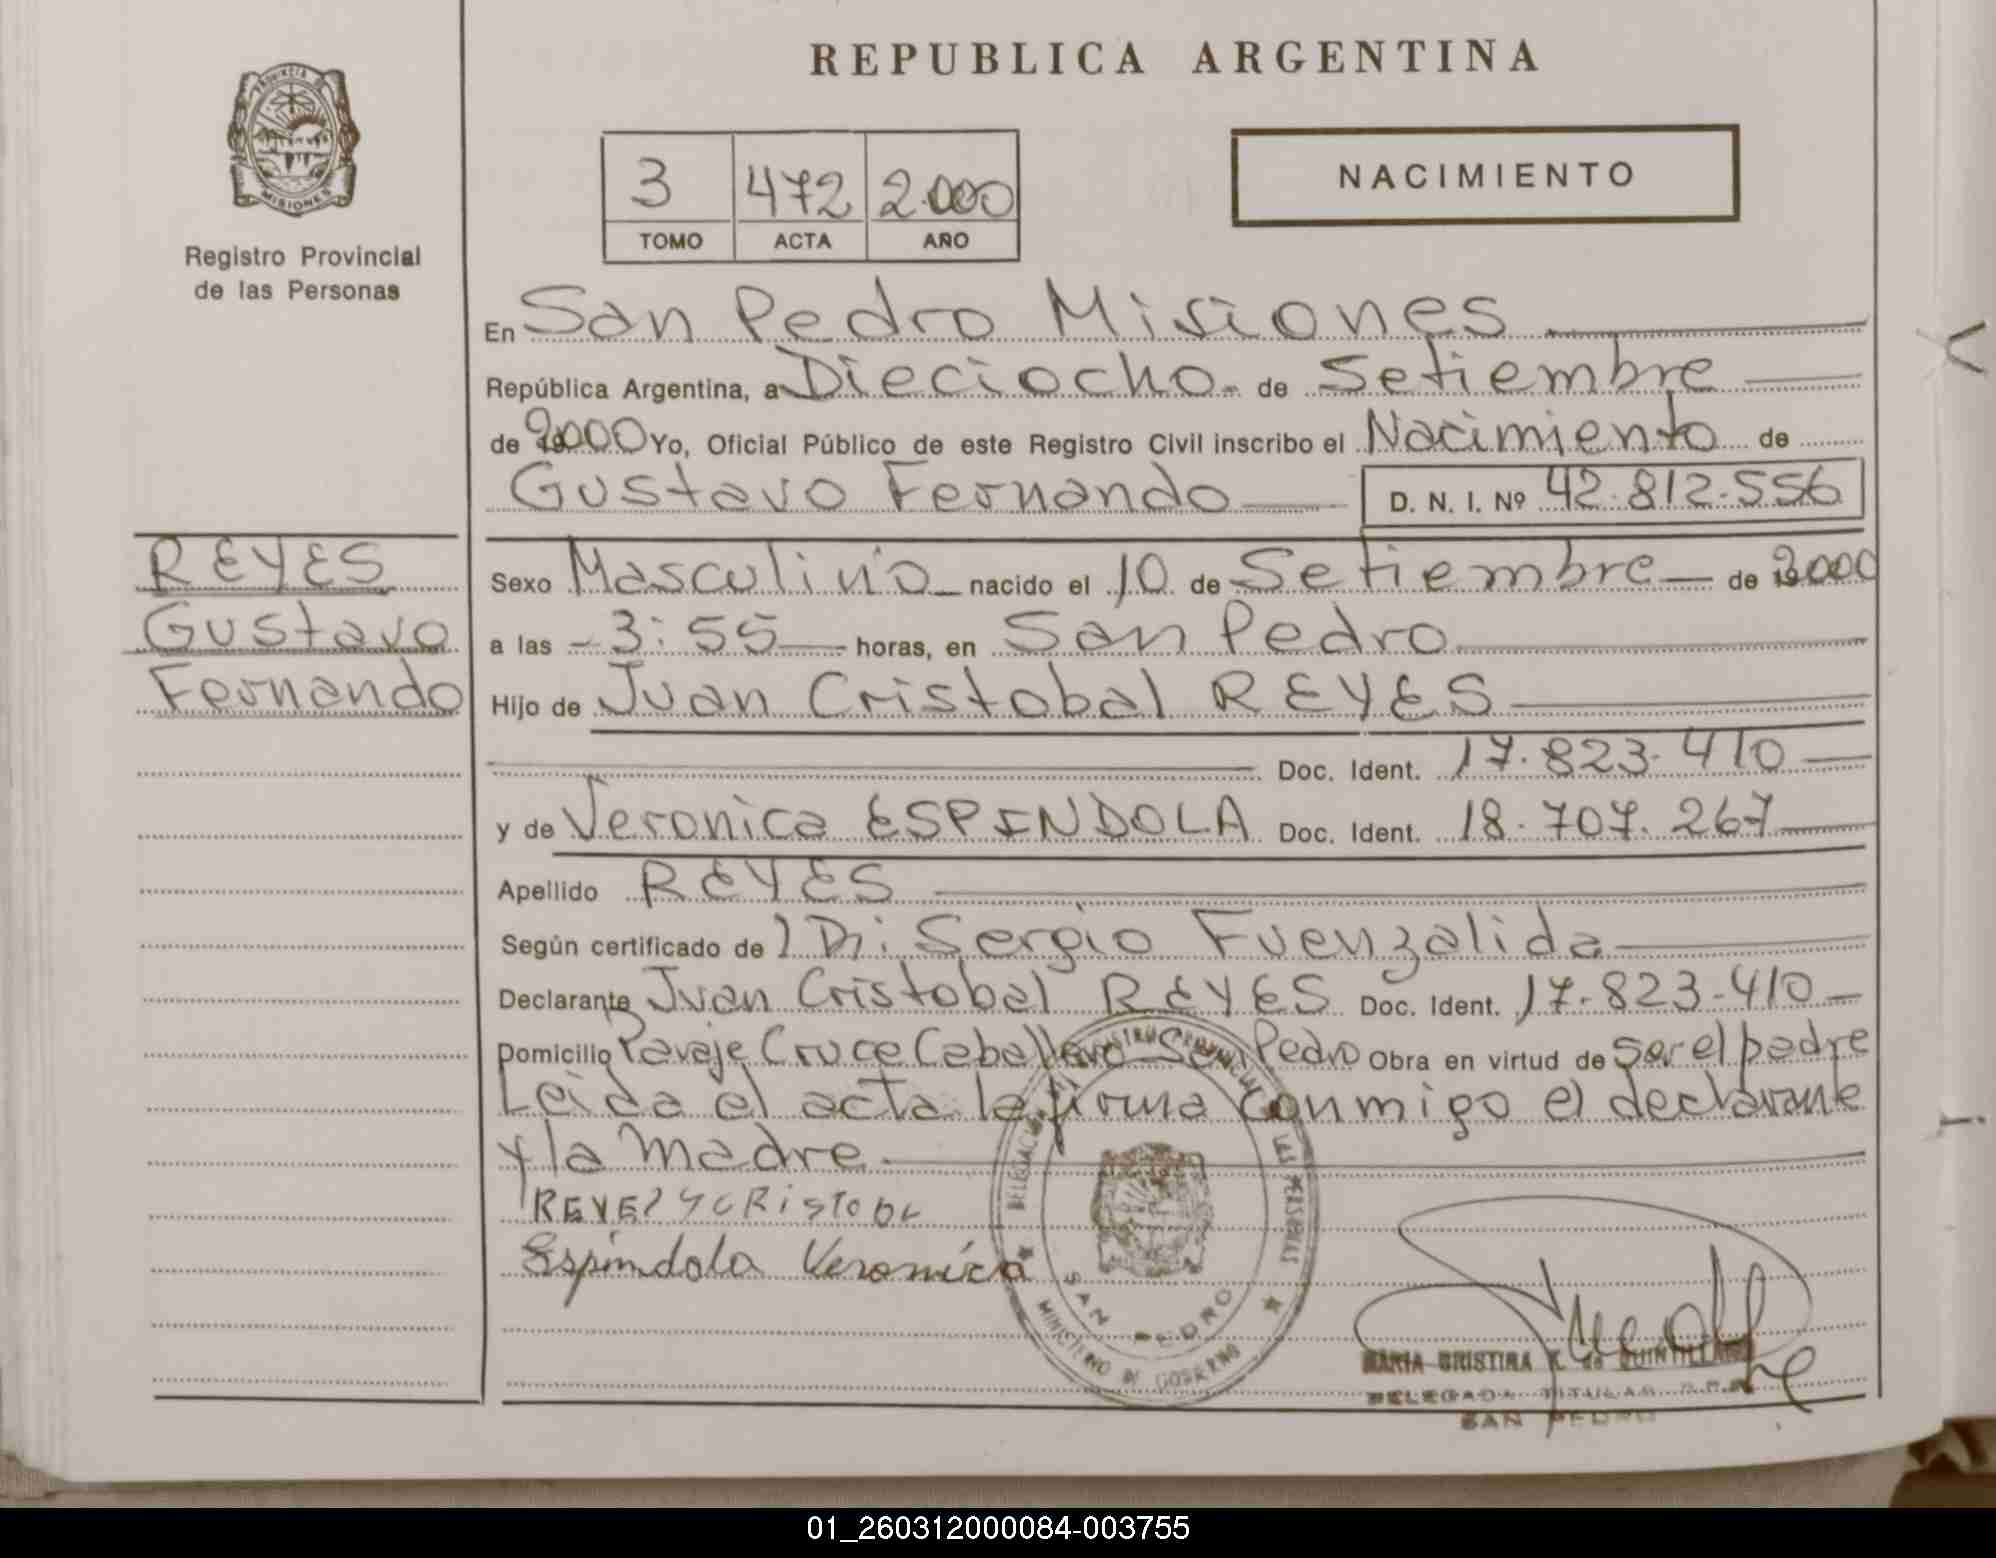 REPUBLICA ARGENTINA
PROVINCIA DE
MISIONES
Registro Provincial
de las Personas
3 472 2.000
TOMO ACTA AÑO
NACIMIENTO
En San Pedro Misiones
República Argentina, a Dieciocho de Setiembre
de 2000 Yo, Oficial Público de este Registro Civil inscribo el Nacimiento de
Gustavo Fernando D. N. I. Nº 42.812.556
REYES
Gustavo
Fernando
Sexo Masculino nacido el 10 de Setiembre de 2000
a las 3:55 horas, en San Pedro
Hijo de Juan Cristobal REYES
Doc. Ident. 17.823.410
y de Veronica ESPINDOLA Doc. Ident. 18.707.267
Apellido REYES
Según certificado de Dr. Sergio Fuenzalida
Declarante Juan Cristobal REYES Doc. Ident. 17.823.410
Domicilio Paraje Cruce Caballero San Pedro Obra en virtud de ser el padre
Leida el acta la firma conmigo el declarante
y la madre
Espindola Veronica
SAN PEDRO
MINISTERIO DE GOBIERNO
MARIA CRISTINA K. de QUINTILLAN
DELEGADA TITULAR R.P.P.
SAN PEDRO
01_260312000084-003755